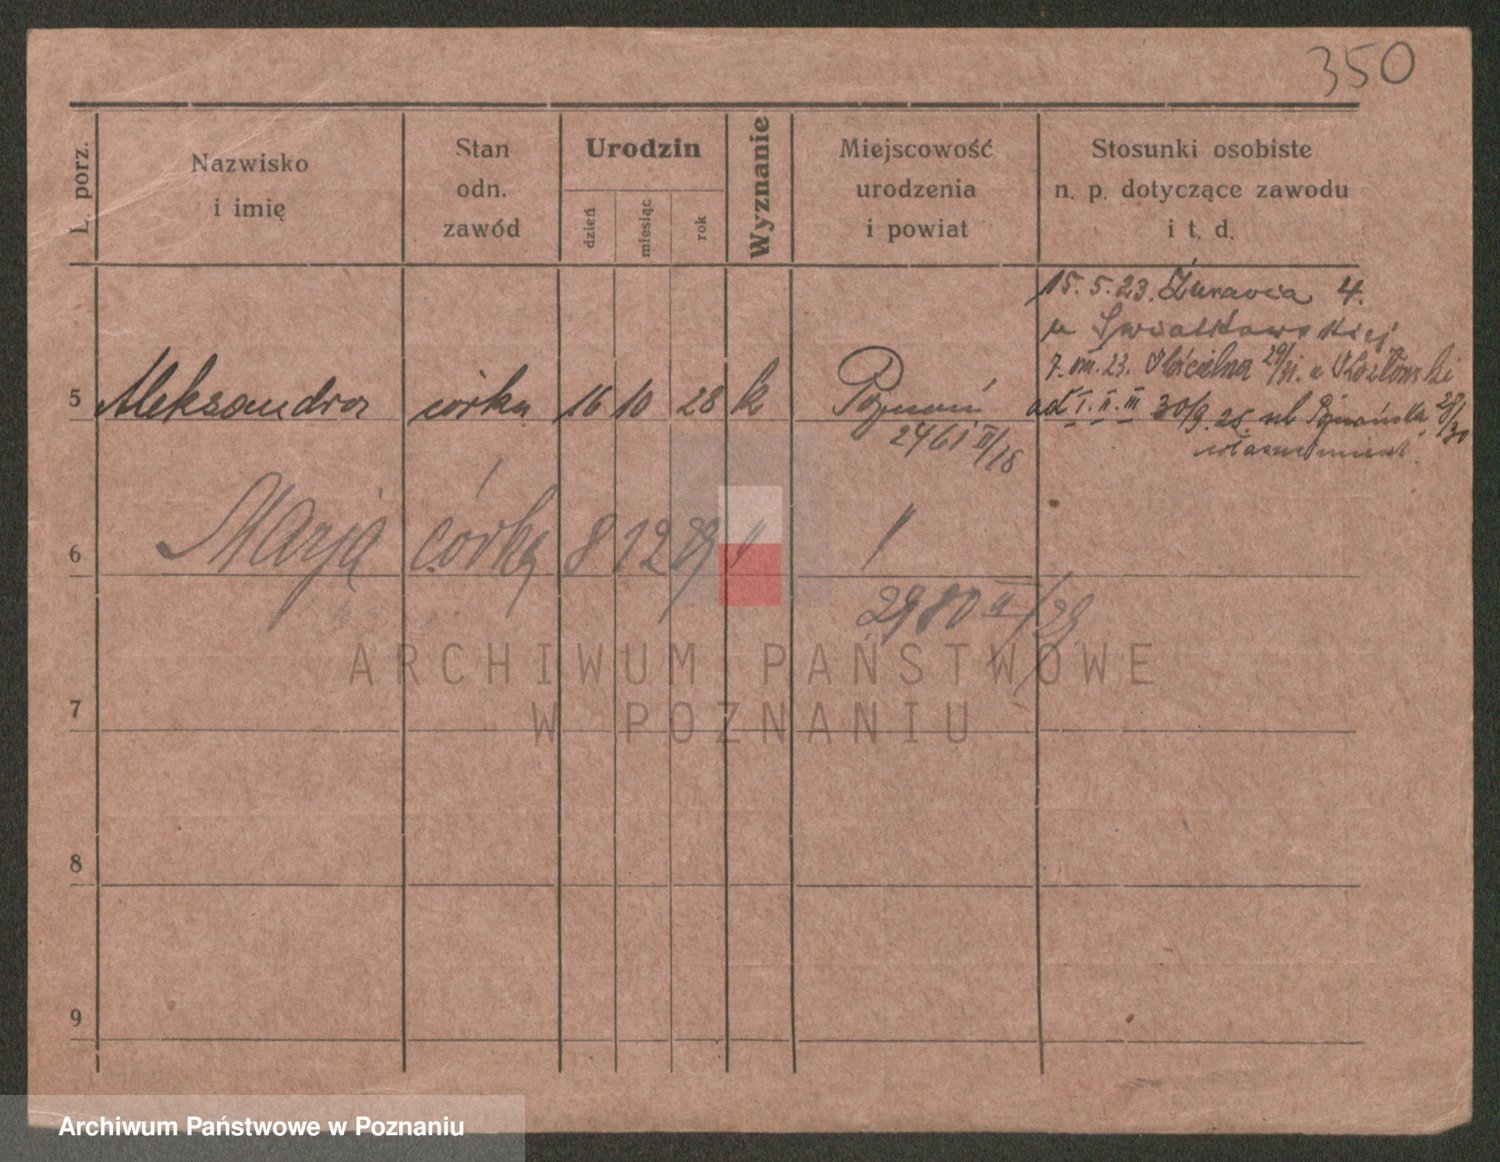 350
L. porz.
Nazwisko
i imię
Stan
odn.
zawód
Urodzin
dzień
miesiąc
rok
Wyznanie
Miejscowość
urodzenia
i powiat
Stosunki osobiste
n. p. dotyczące zawodu
i t. d.
15. 5. 23. Żurawia 4.
u
7. VIII. 23.
5 Aleksandra córka 16 10 28 k Poznań
ad I. II. III 30/9. 25.
2461 III/18
6 Marja córka 8 12 29 " "
2980 II/29
7
8
9
ARCHIWUM PAŃSTWOWE
W POZNANIU
Archiwum Państwowe w Poznaniu